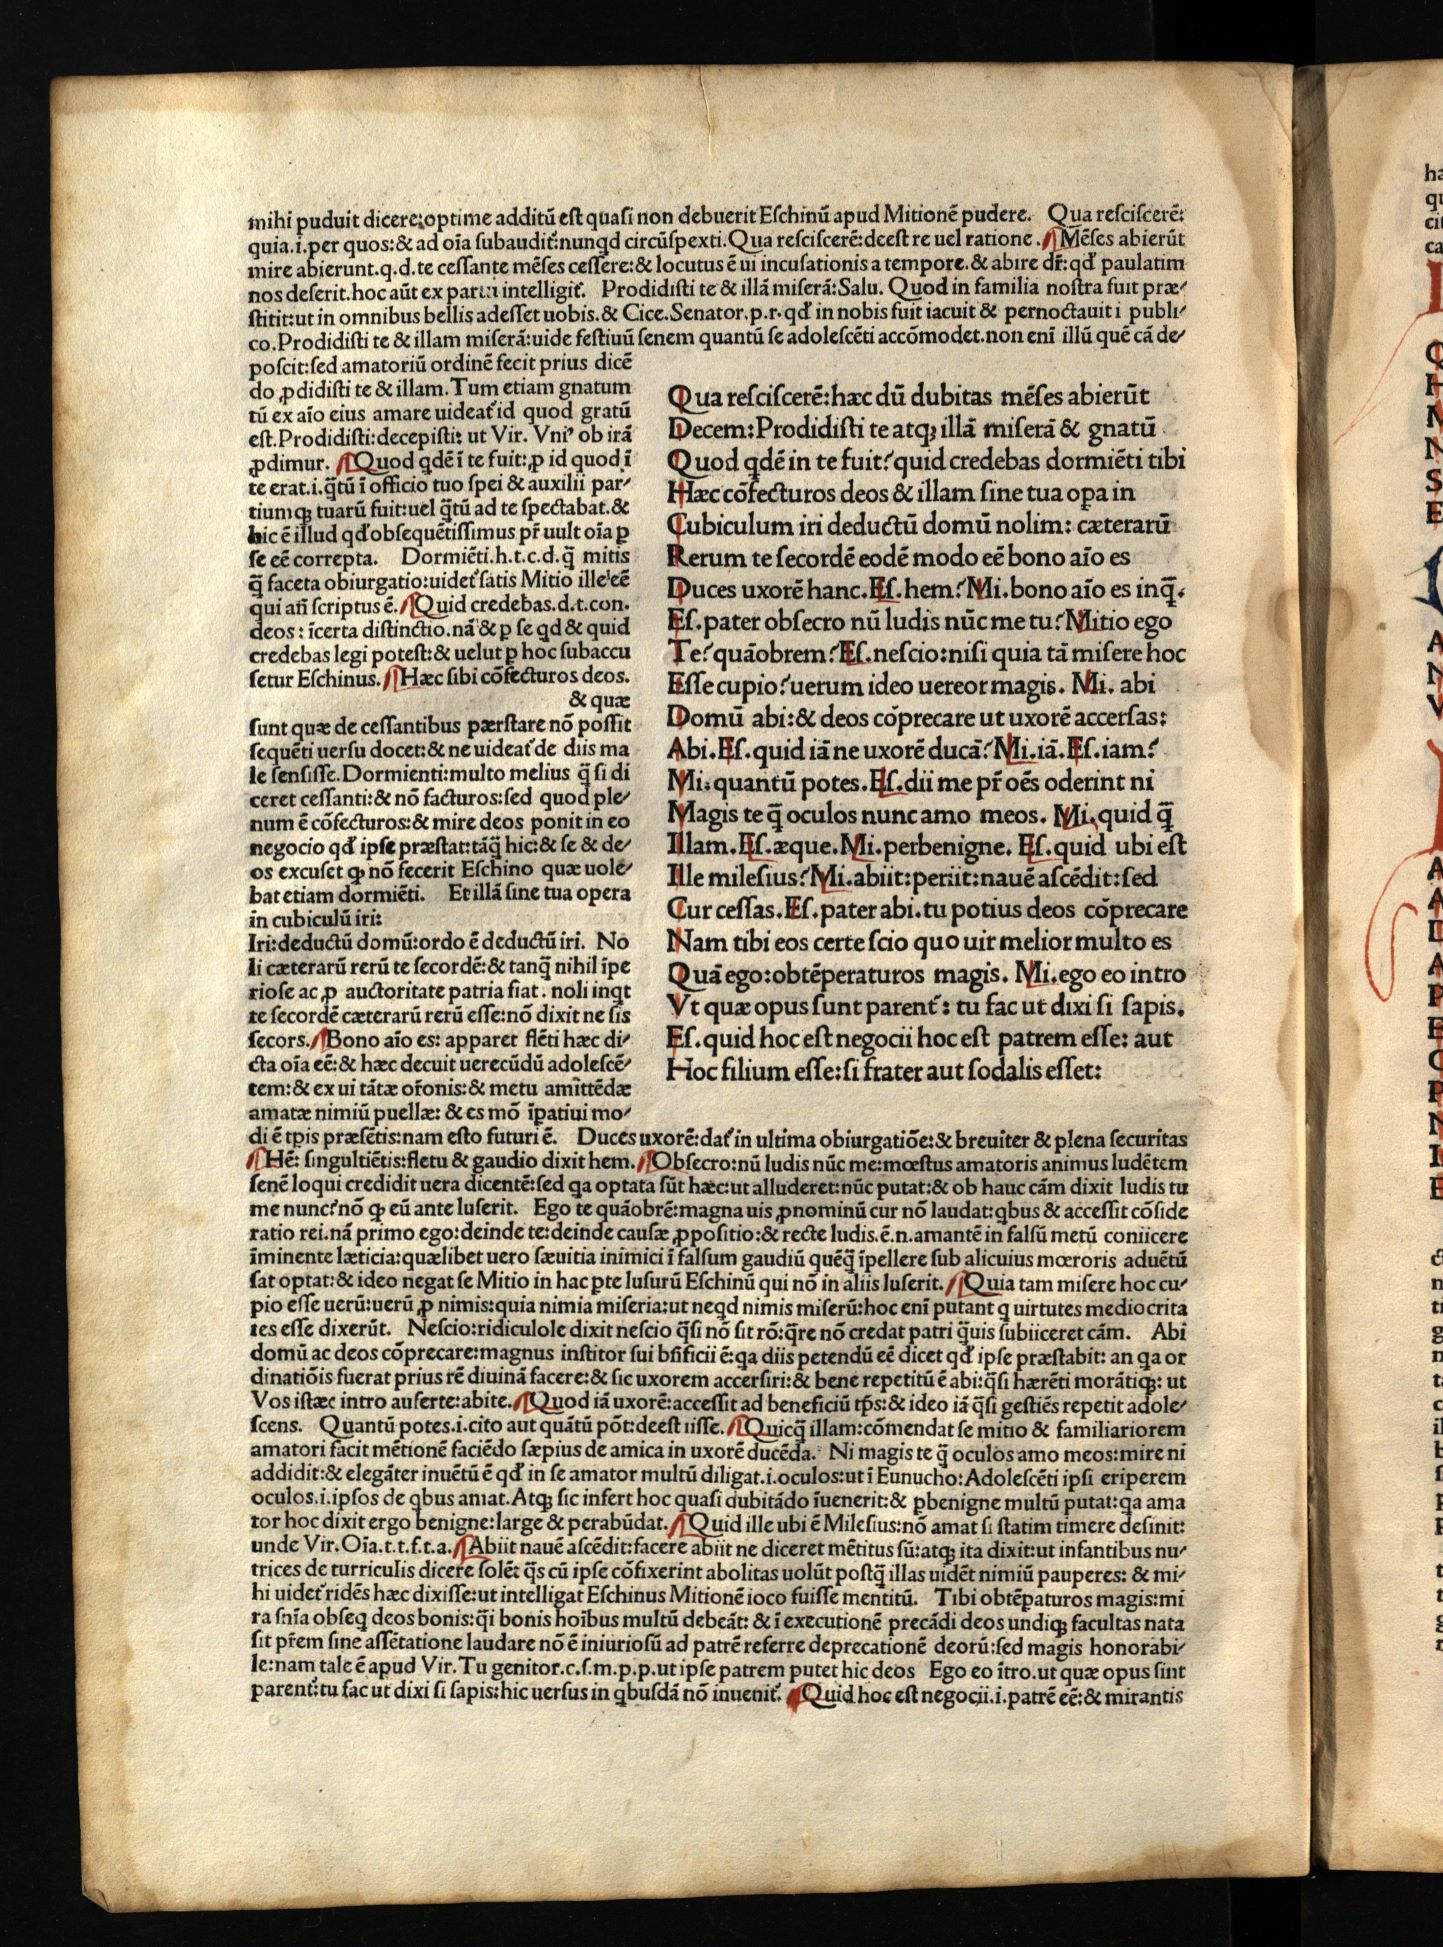 mihi puduit dicere:optime additū est quasi non debuerit Eschinū apud Mitionē pudere. Qua resciscerē:
quia.i.per quos:& ad oīa subaudit᷑:nunqd circūspexti.Qua resciscerē:deest re uel ratione. Mēses abierūt
mire abierunt.q.d.te cessante mēses cessere:& locutus ē ui incusationis a tempore.& abire dr̄:qd' paulatim
nos deserit.hoc aūt ex parui intelligit᷑. Prodidisti te & illā miserā:Salu. Quod in familia nostra fuit præ-
stitit:ut in omnibus bellis adesset uobis.& Cice.Senator.p.r.qd' in nobis fuit iacuit & pernoctauit i publi-
co.Prodidisti te & illam miserā:uide festiuū senem quantū se adolescēti accōmodet.non enī illū quē cā de-
poscit:sed amatoriū ordinē fecit prius dicē
do ꝓdidisti te & illam.Tum etiam gnatum
tū ex aīo eius amare uideat᷑ id quod gratū
est.Prodidisti:decepisti: ut Vir. Vniꝰ ob irā
ꝓdimur. Quod qdē ī te fuit:ꝓ id quod ī
te erat.i.q̄tū ī officio tuo spei & auxilii par-
tiumqꝫ tuarū fuit:uel q̄tū ad te spectabat.&
hic ē illud qd' obsequētissimus pr̄ uult oīa ꝑ
se eē correpta. Dormiēti.h.t.c.d.q̄ mitis
q̄ faceta obiurgatio:uidet᷑ satis Mitio ille eē
qui an̄ scriptus ē. Quid credebas.d.t.con.
deos: īcerta distinctio.nā & ꝑ se qd & quid
credebas legi potest:& uelut ꝑ hoc subaccu
setur Eschinus. Hæc sibi cōfecturos deos.
& quæ
sunt quæ de cessantibus pærstare nō possit
sequēti uersu docet:& ne uideat᷑ de diis ma
le sensisse.Dormienti:multo melius q̄ si di
ceret cessanti:& nō facturos:sed quod ple-
num ē cōfecturos:& mire deos ponit in eo
negocio qd' ipse præstat:tāq̄ hic:& se & de-
os excuset ꝙ nō fecerit Eschino quæ uole-
bat etiam dormiēti. Et illā sine tua opera
in cubiculū iri:
Iri:deductū domū:ordo ē deductū iri. No
li cæterarū rerū te secordē:& tanq̄ nihil īpe
riose ac ꝓ auctoritate patria fiat. noli inqt
te secordē cæterarū rerū esse:nō dixit ne sis
secors. Bono aīo es: apparet flēti hæc di-
cta oīa eē:& hæc decuit uerecūdū adolescē-
tem:& ex ui tātæ or̄onis:& metu amittēdæ
amatæ nimiū puellæ: & es mō īpatiui mo-
Qua resciscerē:hæc dū dubitas mēses abierūt
Decem:Prodidisti te atqꝫ illā miserā & gnatū
Quod qdē in te fuit?quid credebas dormiēti tibi
Hæc cōfecturos deos & illam sine tua oꝑa in
Cubiculum iri deductū domū nolim: cæterarū
Rerum te secordē eodē modo eē bono aīo es
Duces uxorē hanc.Es.hem?Mi.bono aīo es inq̄.
Es.pater obsecro nū ludis nūc me tu?Mitio ego
Te?quāobrem?Es.nescio:nisi quia tā misere hoc
Esse cupio?uerum ideo uereor magis. Mi. abi
Domū abi:& deos cōprecare ut uxorē accersas:
Abi.Es.quid iā ne uxorē ducā?Mi.iā.Es.iam?
Mi.quantū potes.Es.dii me pr̄ oēs oderint ni
Magis te q̄ oculos nunc amo meos. Mi.quid q̄
Illam.Es.æque.Mi.perbenigne. Es.quid ubi est
Ille milesius?Mi.abiit:periit:nauē ascēdit:sed
Cur cessas.Es.pater abi.tu potius deos cōprecare
Nam tibi eos certe scio quo uir melior multo es
Quā ego:obtēperaturos magis. Mi.ego eo intro
Vt quæ opus sunt parent᷑: tu fac ut dixi si sapis.
Es.quid hoc est negocii hoc est patrem esse: aut
Hoc filium esse:si frater aut sodalis esset:
di ē tꝑis præsētis:nam esto futuri ē. Duces uxorē:dat᷑ in ultima obiurgatiōe:& breuiter & plena securitas
Hē: singultiētis:fletu & gaudio dixit hem. Obsecro:nū ludis nūc me:mœstus amatoris animus ludētem
senē loqui credidit uera dicentē:sed qa optata sūt hæc:ut alluderet:nūc putat:& ob hauc cām dixit ludis tu
me nunc?nō ꝙ eū ante luserit. Ego te quāobrē:magna uis ꝓnominū cur nō laudat:qbus & accessit cōside
ratio rei.nā primo ego:deinde te:deinde causæ ꝓpositio:& recte ludis.ē.n.amantē in falsū metū coniicere
īminente læticia:quælibet uero sæuitia inimici ī falsum gaudiū quēq̄ īpellere sub alicuius mœroris aduētū
sat optat:& ideo negat se Mitio in hac ꝑte lusurū Eschinū qui nō in aliis luserit. Quia tam misere hoc cu-
pio esse uerū:uerū ꝓ nimis:quia nimia miseria:ut neqd nimis miserū:hoc enī putant q uirtutes mediocrita
tes esse dixerūt. Nescio:ridiculole dixit nescio q̄si nō sit rō:q̄re nō credat patri q̄uis subiiceret cām. Abi
domū ac deos cōprecare:magnus institor sui bn̄ficii ē:qa diis petendū eē dicet qd' ipse præstabit: an qa or
dinatiōis fuerat prius rē diuinā facere:& sic uxorem accersiri:& bene repetitū ē abi:q̄si hærēti morātiqꝫ: ut
Vos istæc intro auferte:abite. Quod iā uxorē:accessit ad beneficiū tp̄s:& ideo iā q̄si gestiēs repetit adole-
scens. Quantū potes.i.cito aut quātū pōt:deest iisse. Quicq̄ illam:cōmendat se mitio & familiariorem
amatori facit mētionē faciēdo sæpius de amica in uxorē ducēda. Ni magis te q̄ oculos amo meos:mire ni
addidit:& elegāter inuētū ē qd' in se amator multū diligat.i.oculos:ut ī Eunucho:Adolescēti ipsi eriperem
oculos.i.ipsos de qbus amat.Atqꝫ sic infert hoc quasi dubitādo īuenerit:& ꝑbenigne multū putat:qa ama
tor hoc dixit ergo benigne:large & perabūdat. Quid ille ubi ē Milesius:nō amat si statim timere desinit:
unde Vir.Oīa.t.t.f.t.a. Abiit nauē ascēdit:facere abiit ne diceret mētitus sū:atqꝫ ita dixit:ut infantibus nu-
trices de turriculis dicere solē: q̄s cū ipse cōfixerint abolitas uolūt postq̄ illas uidēt nimiū pauperes: & mi-
hi uidet᷑ ridēs hæc dixisse:ut intelligat Eschinus Mitionē ioco fuisse mentitū. Tibi obtēꝑaturos magis:mi
ra sn̄ia obseq deos bonis:q̄i bonis hoībus multū debeāt: & ī executionē precādi deos undiqꝫ facultas nata
sit pr̄em sine assētatione laudare nō ē iniuriosū ad patrē referre deprecationē deorū:sed magis honorabi-
le:nam tale ē apud Vir.Tu genitor.c.s.m.p.p.ut ipse patrem putet hic deos Ego eo ītro.ut quæ opus sint
parent᷑:tu fac ut dixi si sapis:hic uersus in qbusdā nō inuenit᷑. Quid hoc est negocii.i.patrē eē:& mirantis